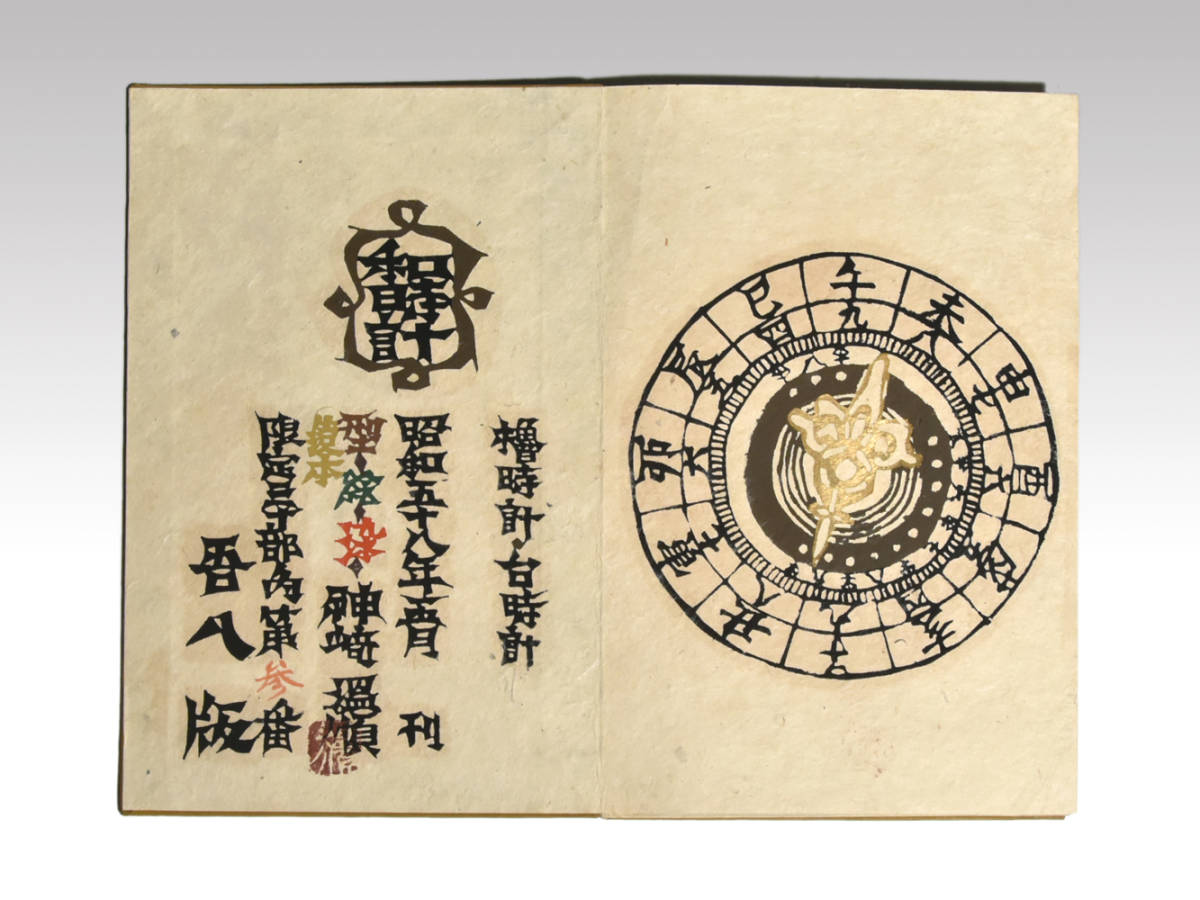 午
九
未
申
七
酉
戌
亥
四
子
丑
八
寅
七
卯
六
辰
五
巳
四
和時計
櫓時計・台時計
昭和五十八年 月 刊
型・絵・染・神崎 温順
限定三十部内第参番
吾八版